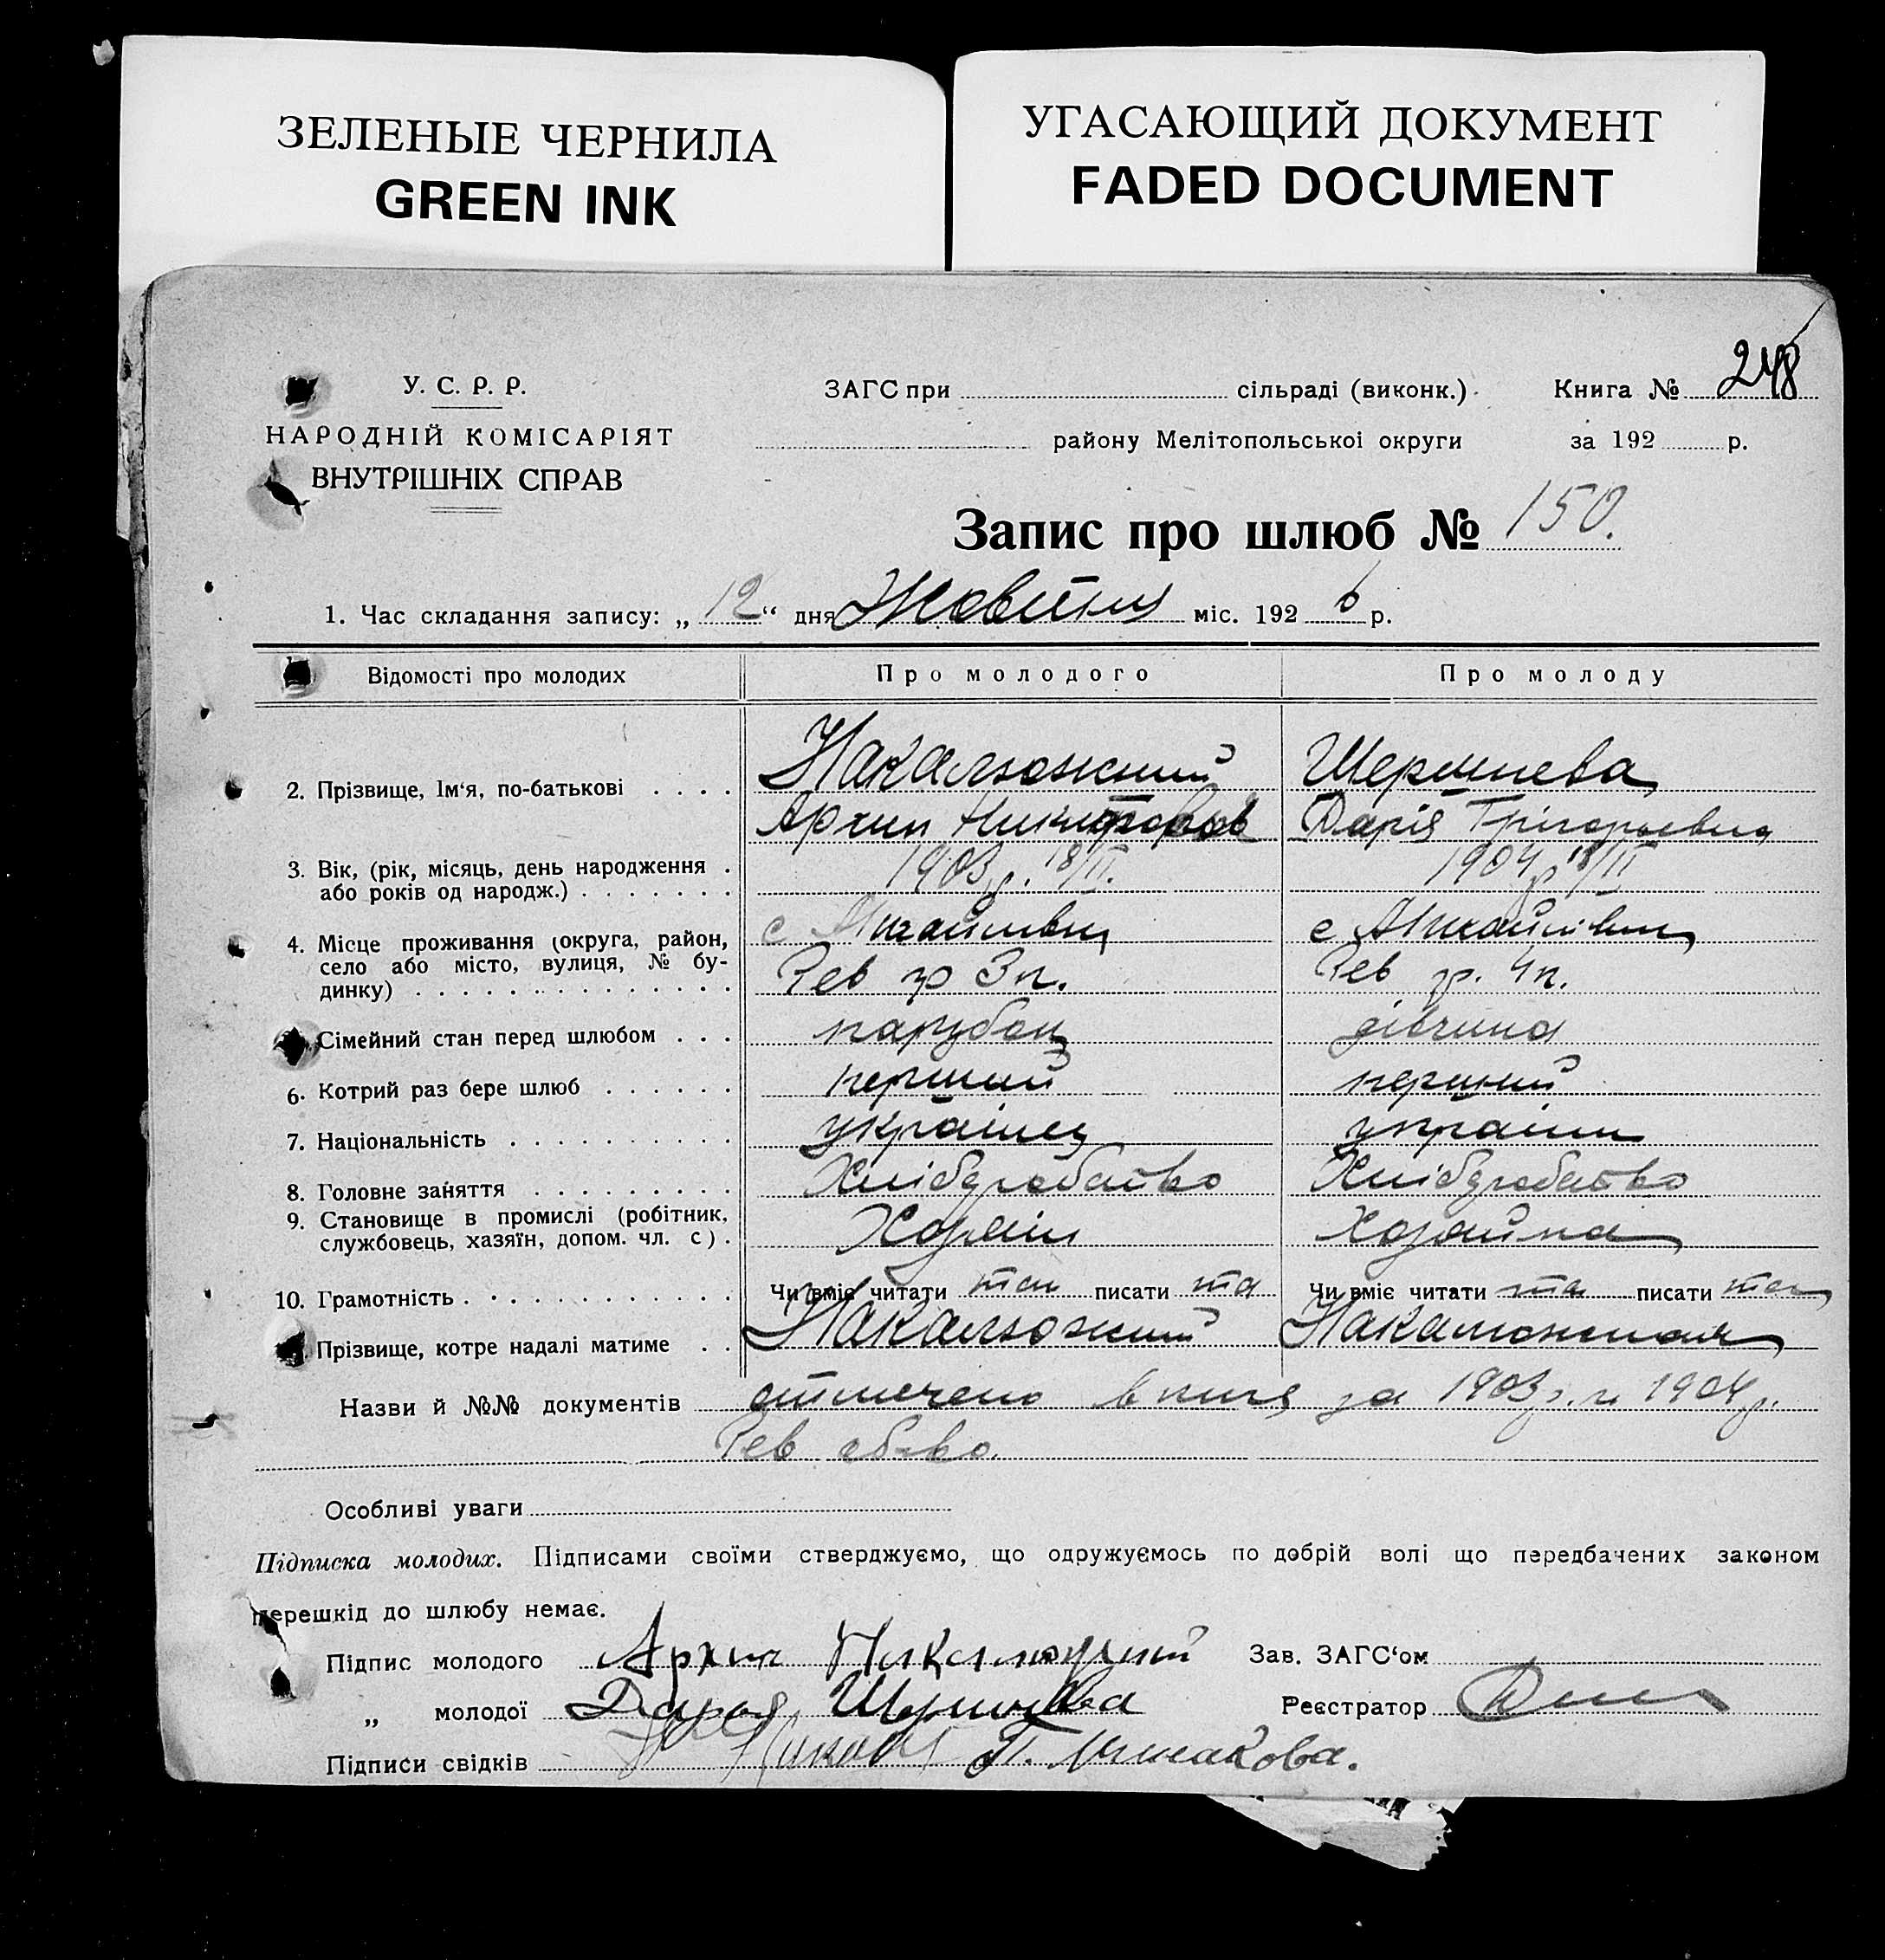 ЗЕЛЕНЫЕ ЧЕРНИЛА
GREEN INK
УГАСАЮЩИЙ ДОКУМЕНТ
FADED DOCUMENT
У. С. Р. Р.
НАРОДНІЙ КОМІСАРІЯТ
ВНУТРІШНІХ СПРАВ
ЗАГС при сільраді (виконк.) Книга № 248
району Мелітопольської округи за 192 р.
Запис про шлюб № 150.
1. Час складання запису: „ 12 “ дня Жовтня міс. 192 6 р.
Відомості про молодих Про молодого Про молоду
2. Прізвище, Ім'я, по-батькові Накалюжний
Архип
Дарія Грігорьевна
3. Вік, (рік, місяць, день народження або років од народж.) 1903 р. 18/II. 1904 р 18/II
4. Місце проживання (округа, район, село або місто, вулиця, № будинку) с Михайлівка с Михайлівка
Рев гр 3 п. Рев гр. 4 п.
Сімейний стан перед шлюбом парубок дівчина
6. Котрий раз бере шлюб перший перший
7. Національність українец україн
8. Головне заняття Хліборобство Хліборобство
9. Становище в промислі (робітник, службовець, хазяїн, допом. чл. с). Хозяін Хозяйка
10. Грамотність Чи вміє читати так писати та Чи вміє читати та писати так
Прізвище, котре надалі матиме Накалюжний Накалюжная
Назви й №№ документів отмечено в книз за 1903 р. и 1904 р.
Рев об-во.
Особливі уваги
Підписка молодих. Підписами своїми стверджуємо, що одружуємось по добрій волі що передбачених законом
перешкід до шлюбу немає.
Підпис молодого Архип Зав. ЗАГС'ом
„ молодої Дарья Реєстратор
Підписи свідків